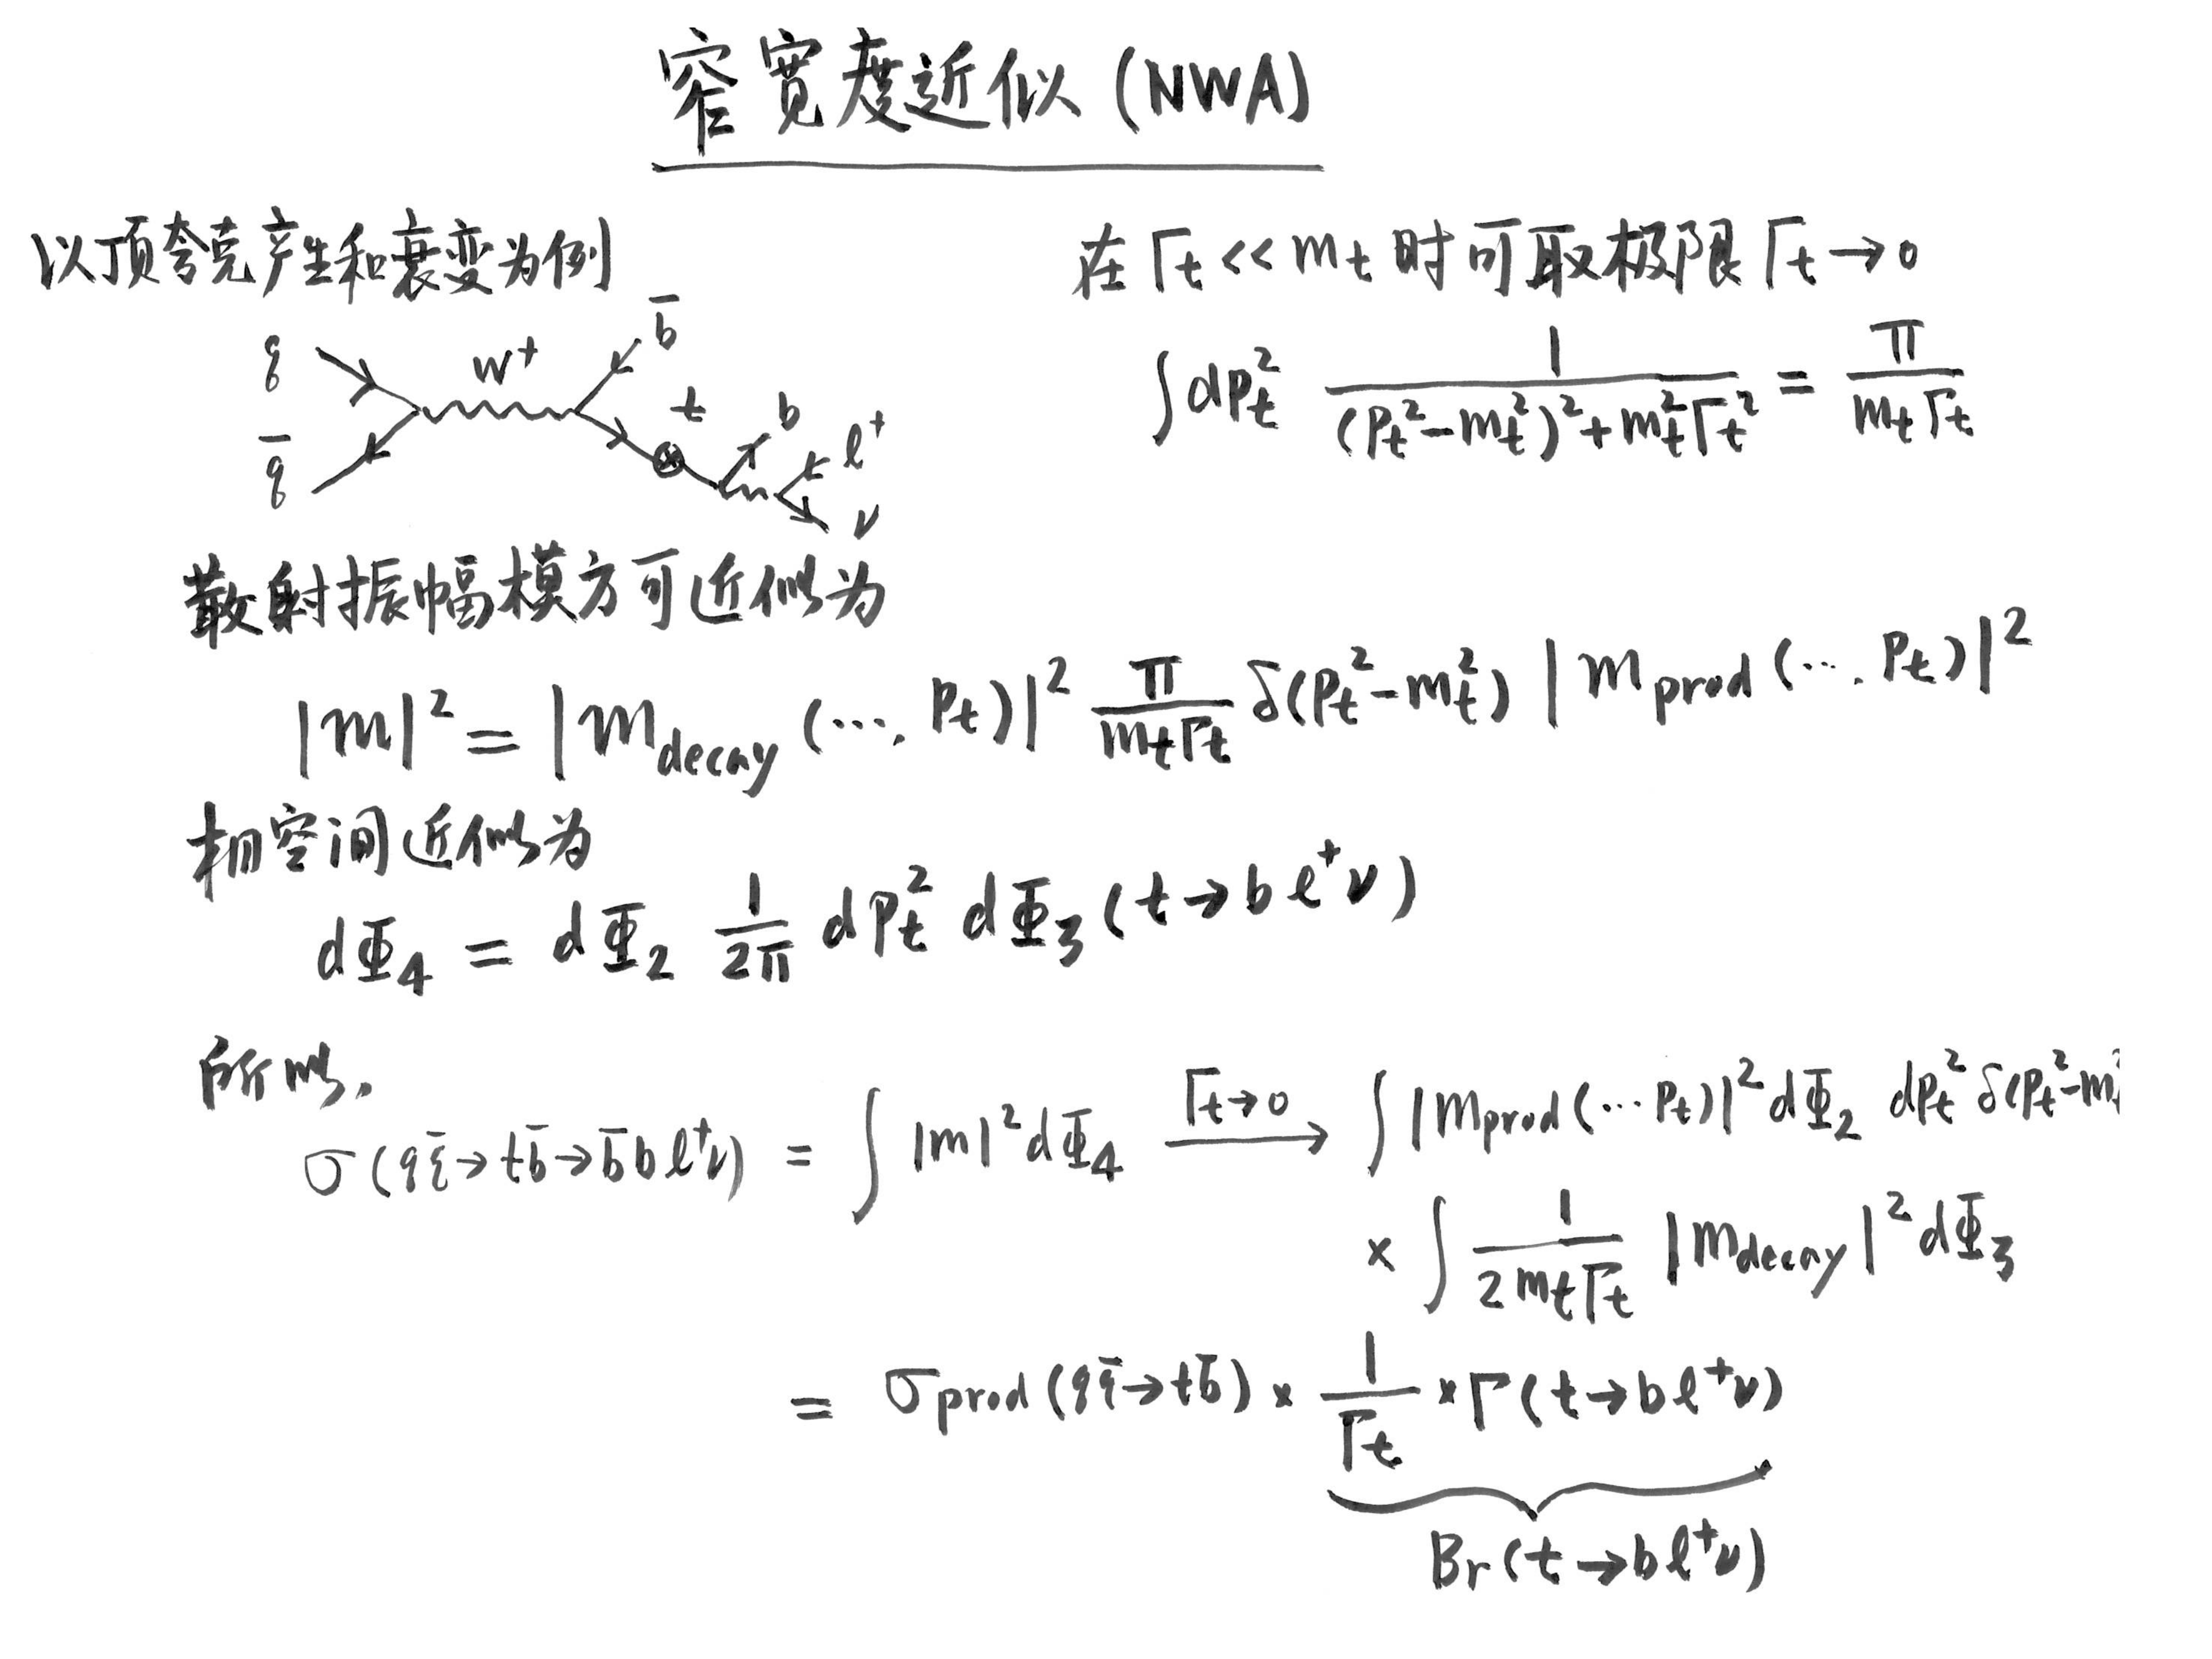 窄宽度近似 (NWA)
以顶夸克产生和衰变为例
q
q̄
W⁺
b̄
t
b
ℓ⁺
ν
在 Γt << mt 时可取极限 Γt → 0
∫ dPt² 1 / ((Pt² − mt²)² + mt²Γt²) = π / (mt Γt)
散射振幅模方可近似为
|m|² = |m decay (…, Pt)|² π/(mt Γt) δ(Pt² − mt²) |m prod (…, Pt)|²
相空间近似为
dΦ₄ = dΦ₂ 1/(2π) dPt² dΦ₃ (t → b ℓ⁺ ν)
所以,
σ (q q̄ → t b̄ → b̄ b ℓ⁺ ν) = ∫ |m|² dΦ₄ Γt→0 ⟶ ∫ |m prod (… Pt)|² dΦ₂ dPt² δ(Pt² − m
× ∫ 1/(2 mt Γt) |m decay|² dΦ₃
= σ prod (q q̄ → t b̄) × 1/Γt × Γ (t → b ℓ⁺ ν)
Br (t → b ℓ⁺ ν)